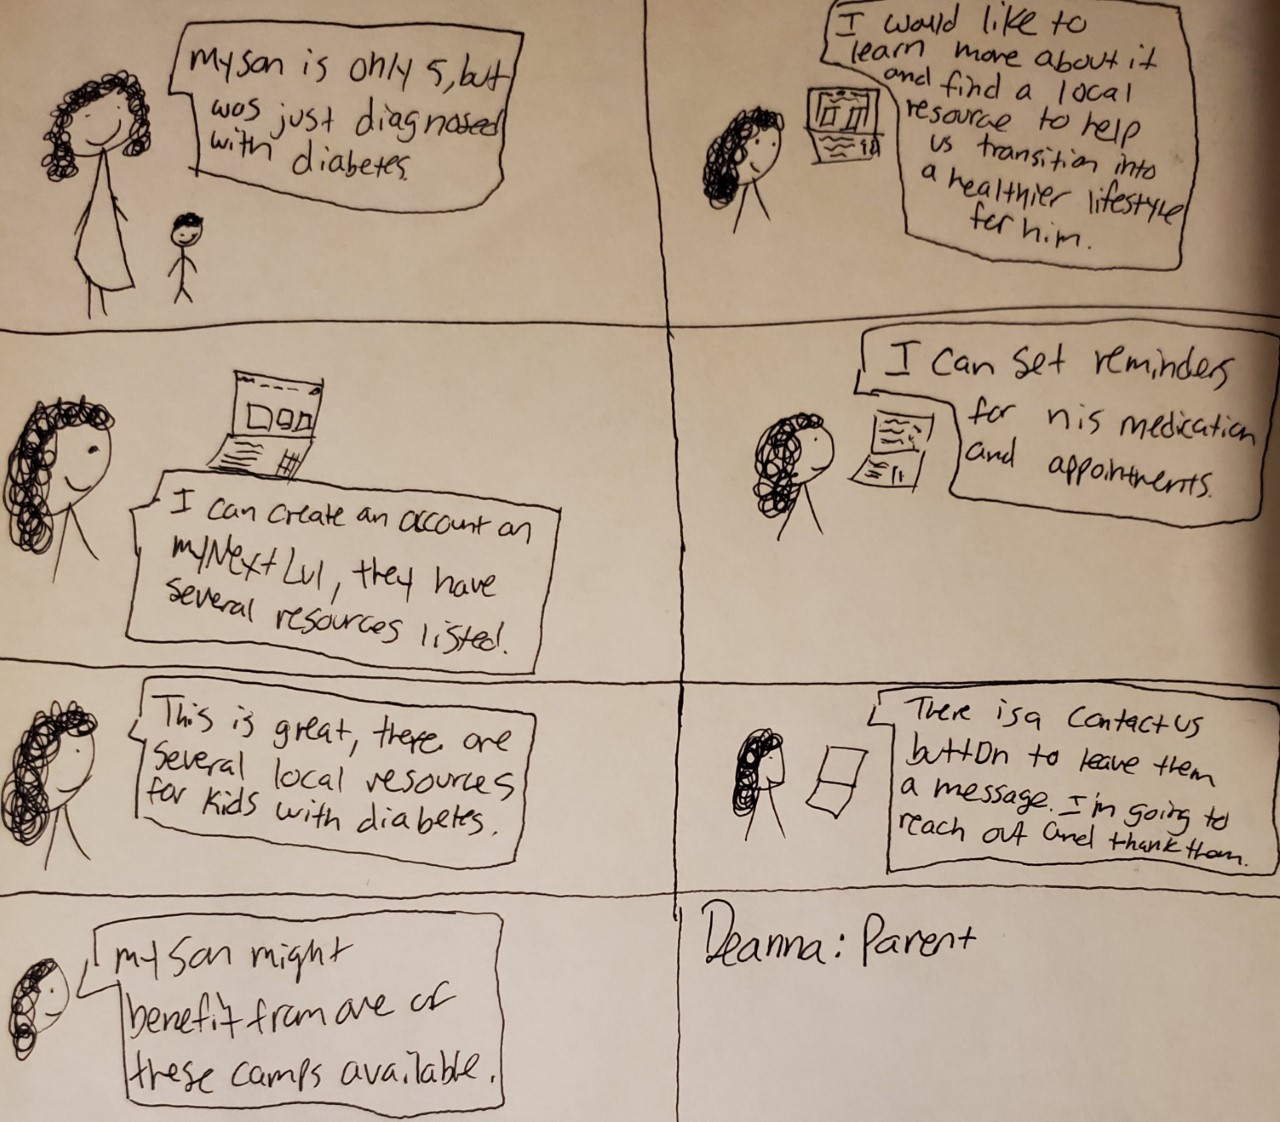 my son is only 5, but
was just diagnosed
with diabetes.
I would like to
learn more about it
and find a local
resource to help
us transition into
a healthier lifestyle
for him.
I can create an account on
myNextLvl, they have
several resources listed.
I can set reminders
for his medication
and appointments.
This is great, there are
several local resources
for kids with diabetes.
There is a contact us
button to leave them
a message. I'm going to
reach out and thank them.
my son might
benefit from one of
these camps available.
Deanna: Parent